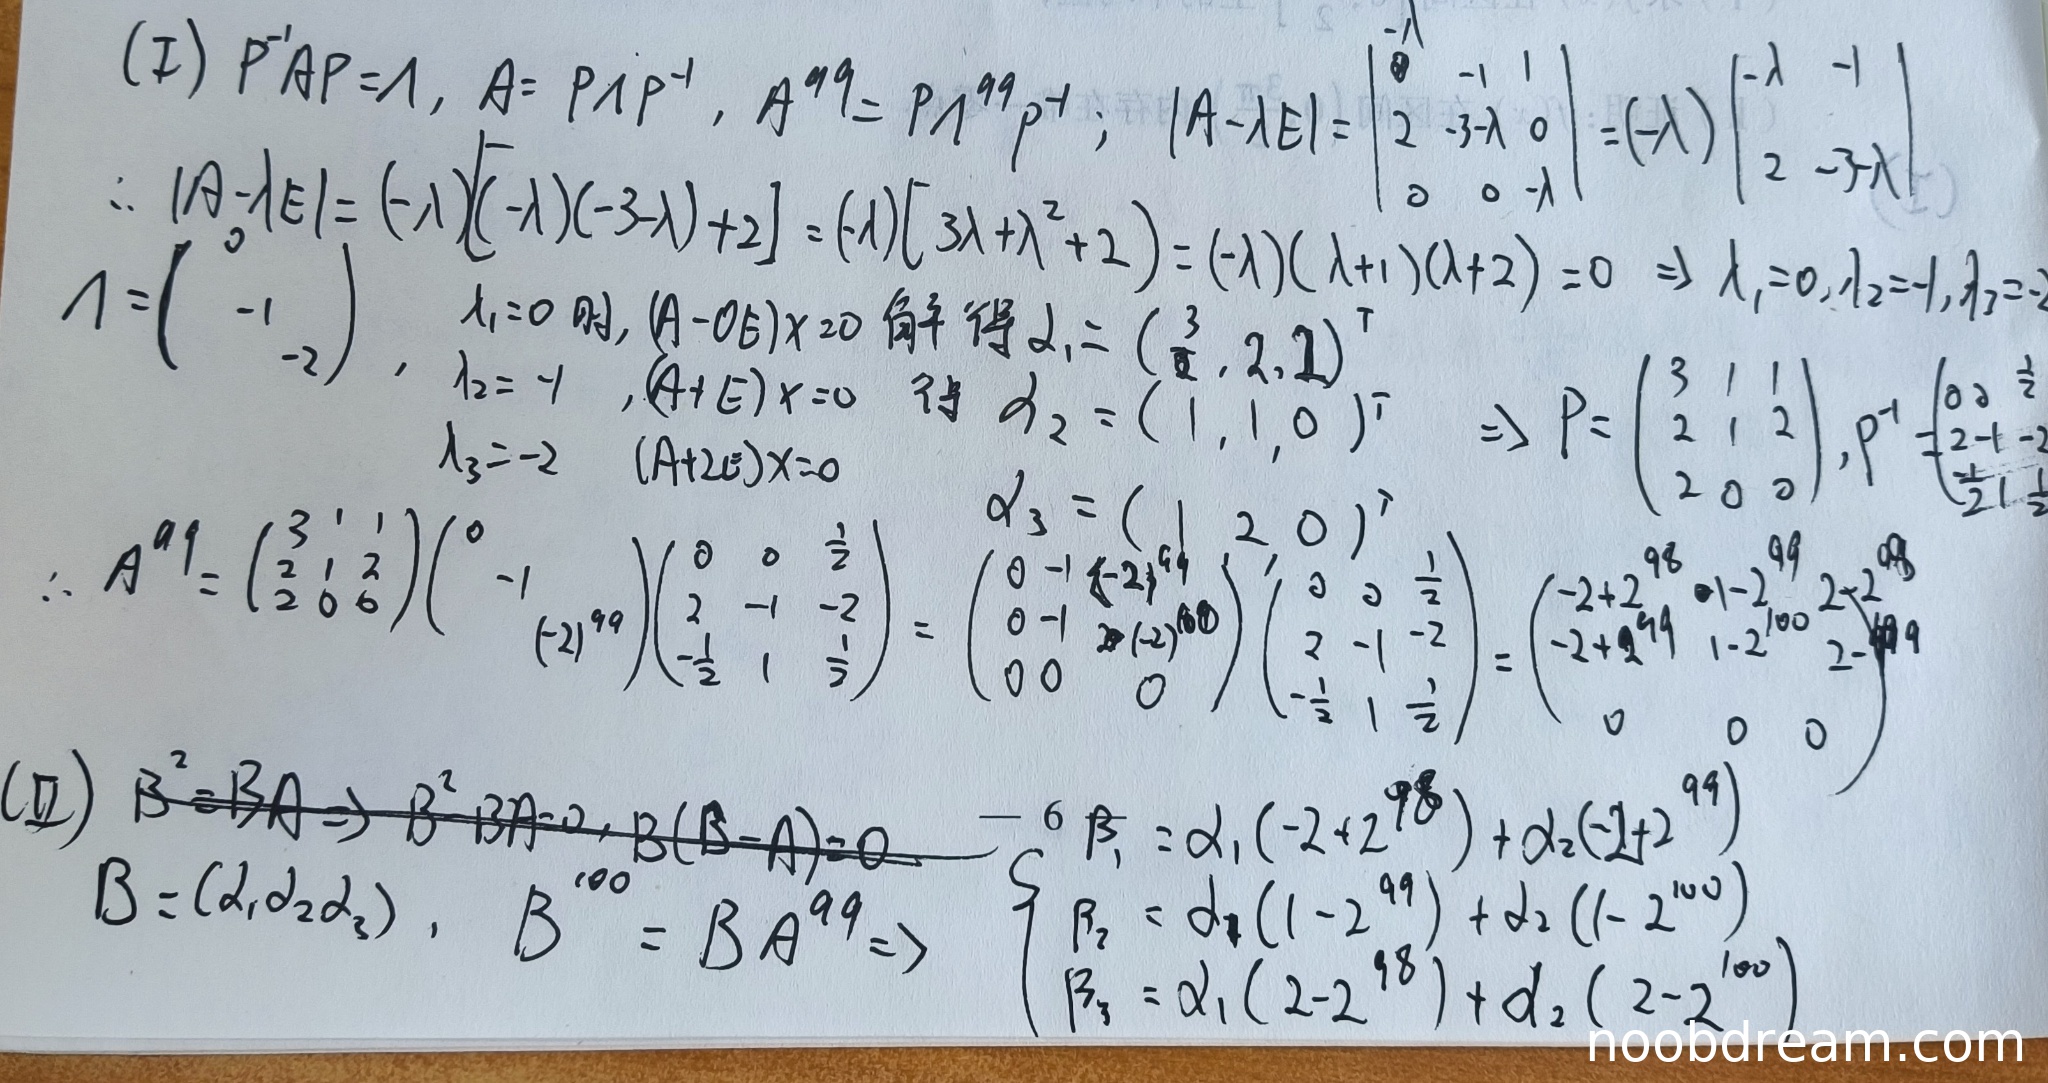 (I) P⁻¹AP=Λ, A=PΛP⁻¹, A⁹⁹=PΛ⁹⁹P⁻¹; |A-λE|=|-λ -1 1; 2 -3-λ 0; 0 0 -λ|=(-λ)|-λ -1; 2 -3-λ|
∴ |A-λE|=(-λ)[(-λ)(-3-λ)+2]=(-λ)[3λ+λ²+2)=(-λ)(λ+1)(λ+2)=0 ⇒ λ₁=0,λ₂=-1,λ₃=-2
Λ=(0 -1 -2), λ₁=0时,(A-0E)x=0 解得 α₁=(3,2,2)ᵀ
λ₂=-1,(A+E)x=0 得 α₂=(1,1,0)ᵀ ⇒ P=(3 1 1; 2 1 2; 2 0 0), P⁻¹=(0 0 1/2; 2 -1 -2; -1/2 1 1/2
λ₃=-2 (A+2E)x=0 α₃=(1,2,0)ᵀ
∴ A⁹⁹=(3 1 1; 2 1 2; 2 0 0)(0 -1 (-2)⁹⁹)(0 0 1/2; 2 -1 -2; -1/2 1 1/2)=(0 -1 (-2)⁹⁹; 0 -1 -(-2)¹⁰⁰; 0 0 0)(0 0 1/2; 2 -1 -2; -1/2 1 1/2)=(-2+2⁹⁸ 1-2⁹⁹ 2-2⁹⁸; -2+2⁹⁹ 1-2¹⁰⁰ 2-2⁹⁹; 0 0 0)
(II) B²=BA⇒B²-BA=0, B(B-A)=0 —6
B=(α₁α₂α₃), B¹⁰⁰=BA⁹⁹⇒
{β₁=α₁(-2+2⁹⁸)+α₂(-2+2⁹⁹)
β₂=α₁(1-2⁹⁹)+α₂(1-2¹⁰⁰)
β₃=α₁(2-2⁹⁸)+α₂(2-2¹⁰⁰)
noobdream.com